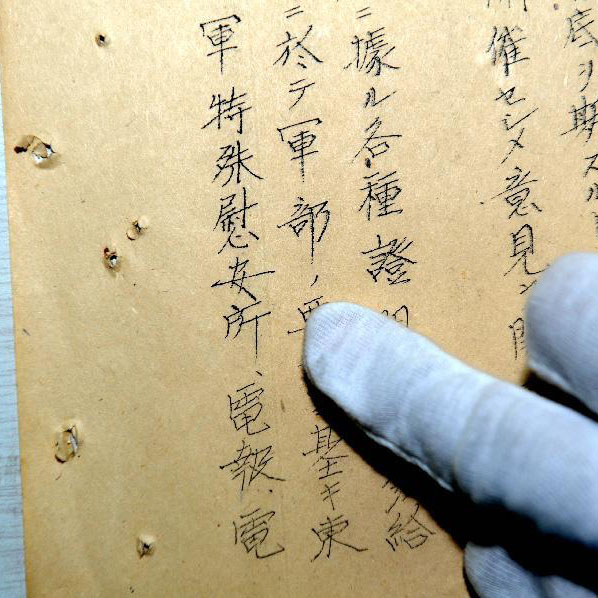 底ヲ期スル
催セシメ意見ヲ
ニ據ル各種證給
ニ於テ軍部ノ基キ東
軍特殊慰安所、電報、電